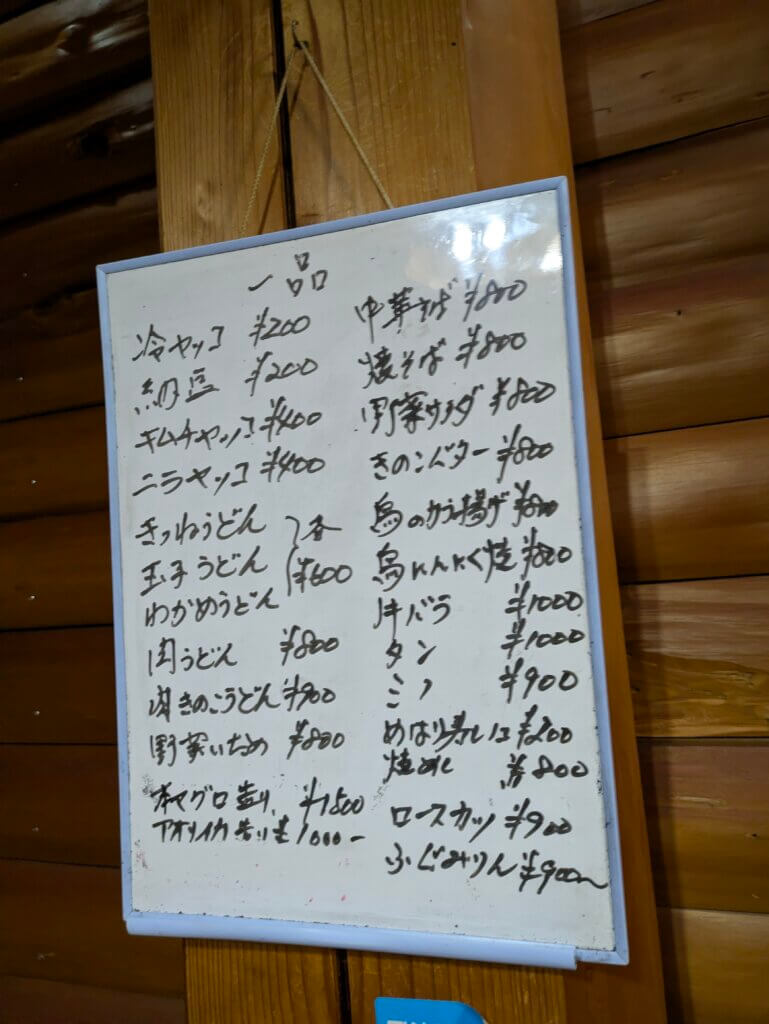 一品
冷ヤッコ ¥200
納豆 ¥200
キムチヤッコ ¥400
ニラヤッコ ¥400
きつねうどん
玉子うどん 各¥600
わかめうどん
肉うどん ¥800
肉きのこうどん ¥900
野菜いため ¥800
本マグロ造り ¥1500
アオリイカ造り ¥1000-
中華そば ¥800
焼そば ¥800
野菜サラダ ¥800
きのこバター ¥800
鳥のから揚げ ¥800
鳥にんにく焼 ¥800
牛バラ ¥1000
タン ¥1000
ミノ ¥900
めはり寿し1コ ¥200
焼めし ¥800
ロースカツ ¥900
ふぐみりん ¥900